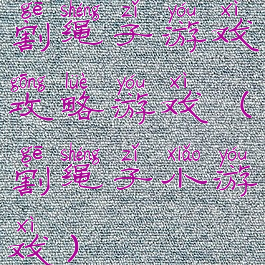 gē shéng zǐ yóu xì
割绳子游戏
gōng lüè yóu xì
攻略游戏（
gē shéng zǐ xiǎo yóu
割绳子小游
xì
戏）